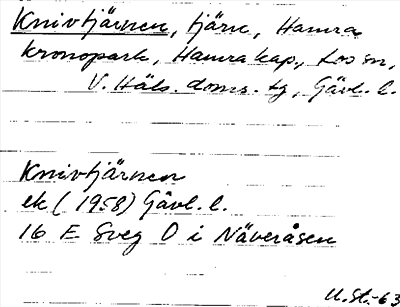 Knivtjärnen, tjärn, Hamra
kronopark, Hamra kap., Loo sn,
V. Häls. doms. tg, Gävl. l.
Knivtjärnen
ek (1958) Gävl. l.
16 E Sveg O i Näveråsen
U.St.-63